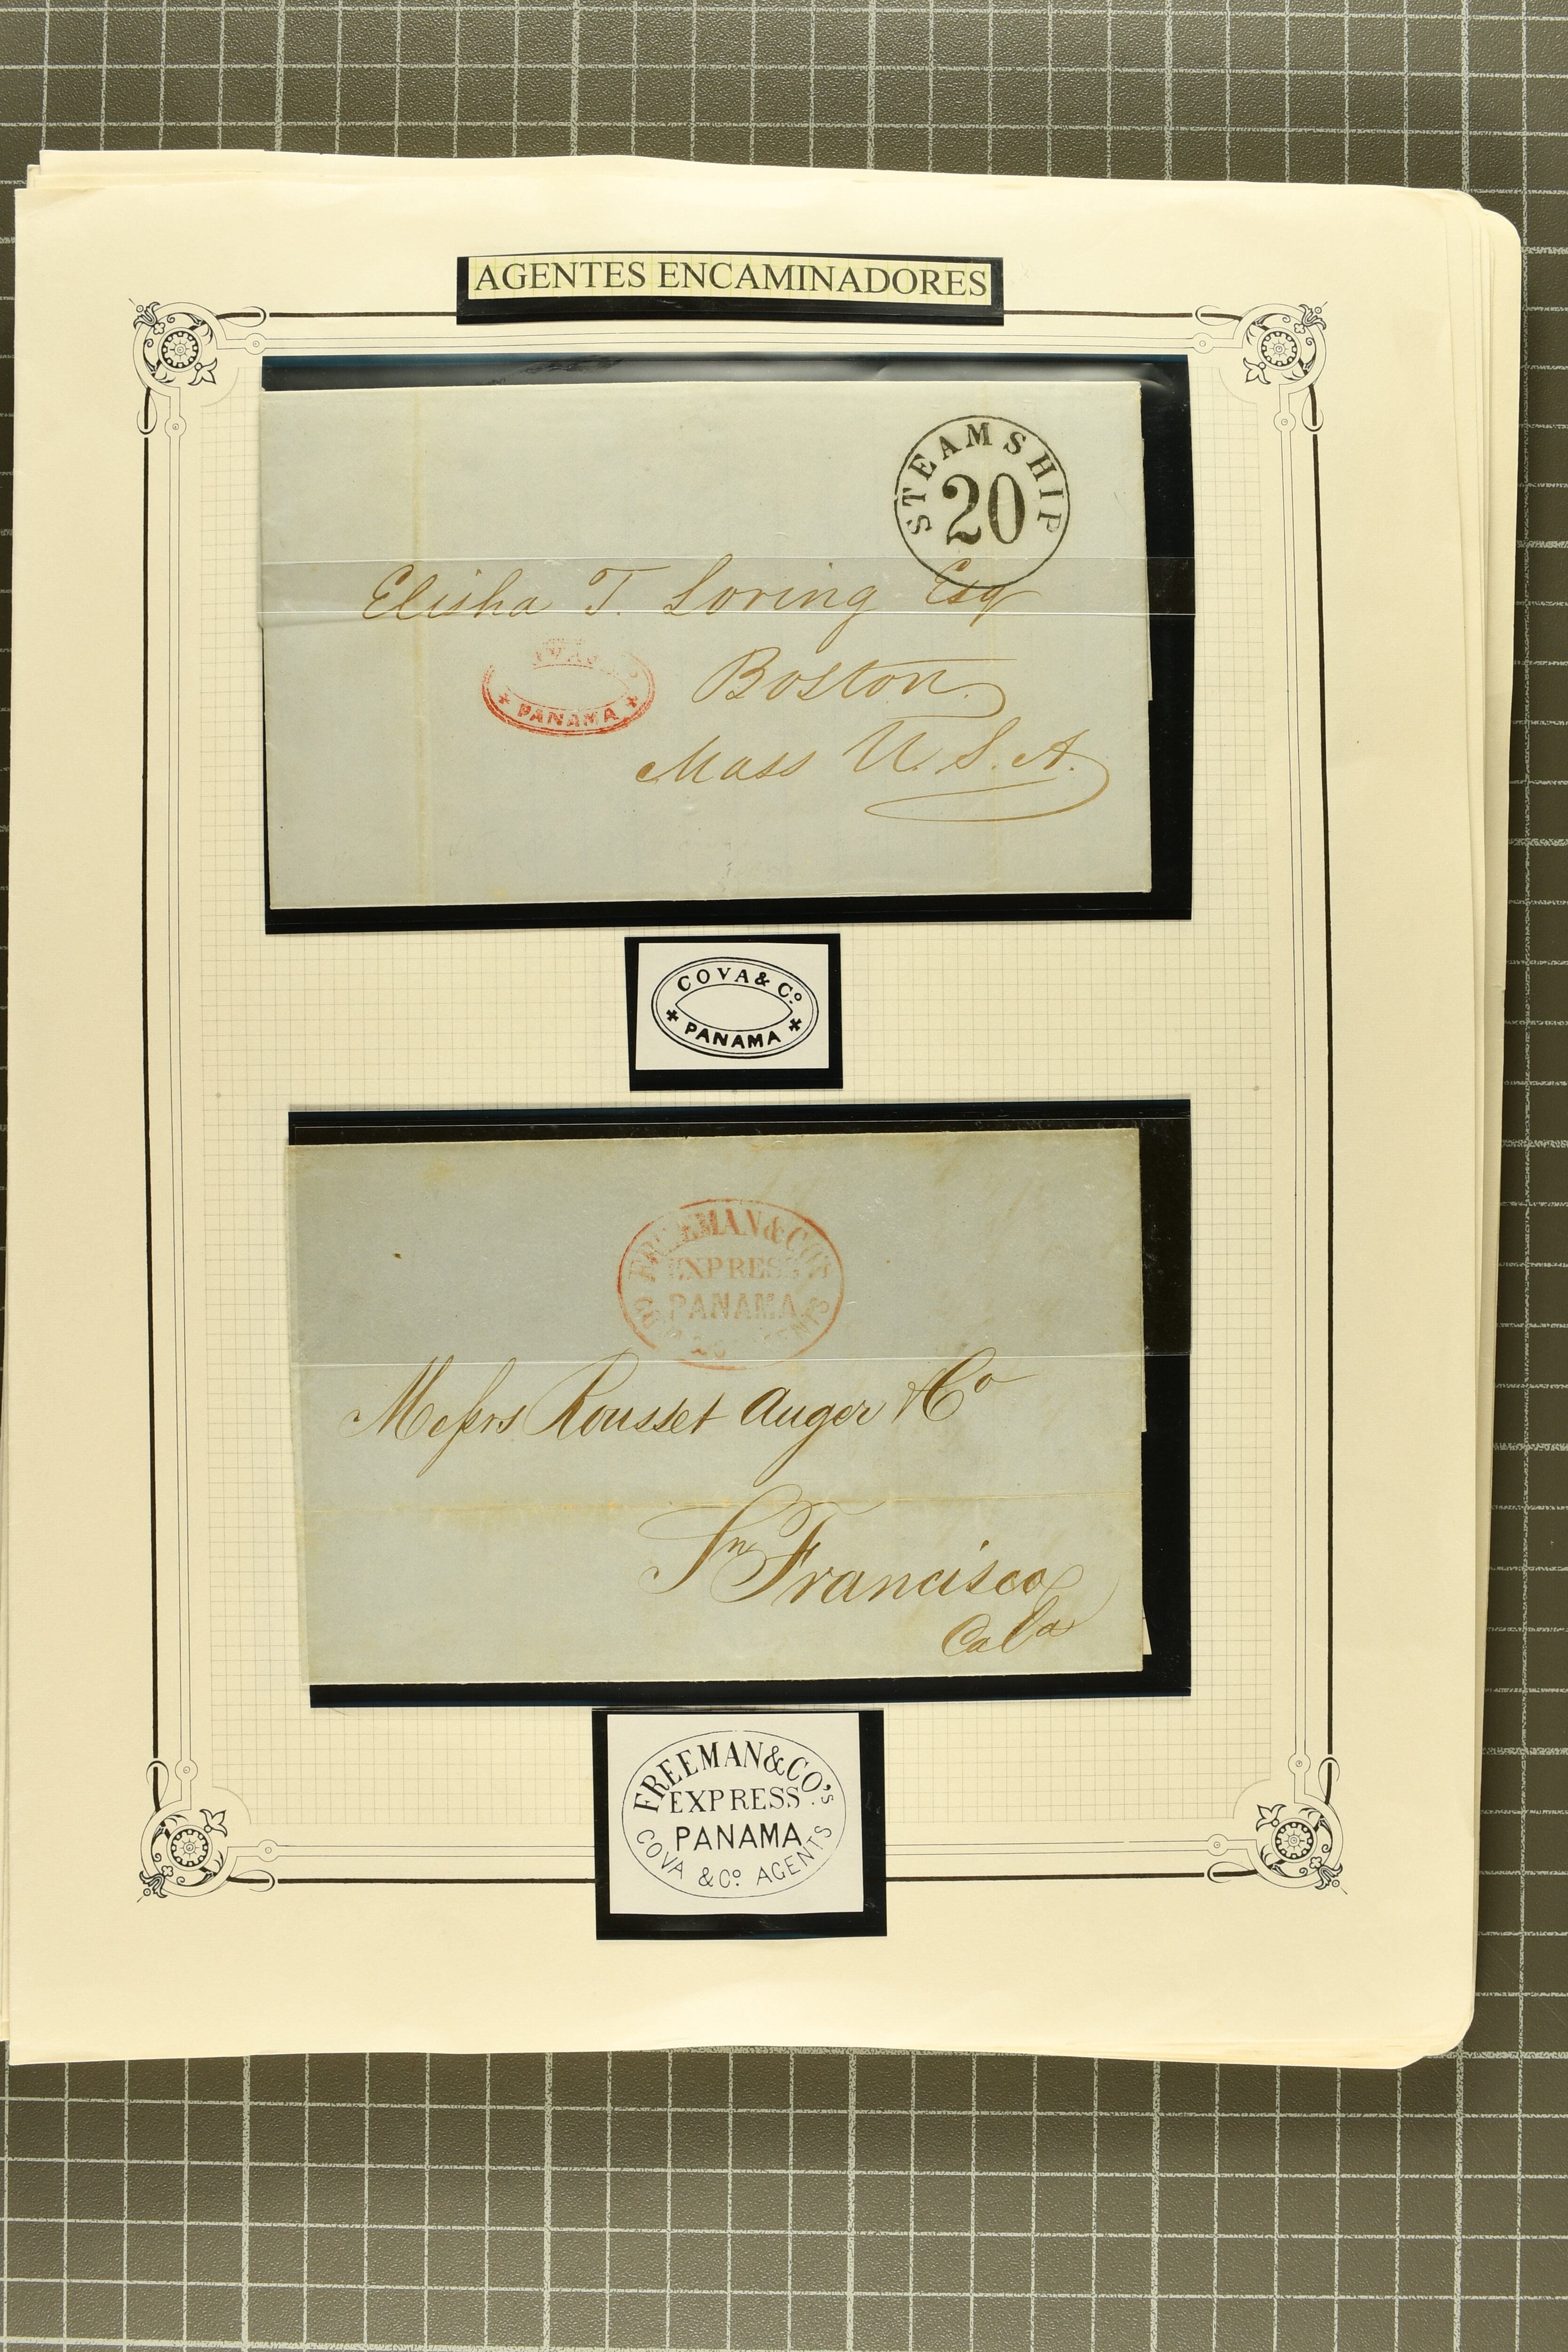 AGENTES ENCAMINADORES
STEAMSHIP
20
Elisha T. Loring Esq
Boston
Mass U.S.A.
PANAMA
COVA & Cº
PANAMA
FREEMAN & CO'S
EXPRESS
PANAMA
Messrs Rousset Auger & Cº
Sn Francisco
Cala
FREEMAN & CO'S
EXPRESS
PANAMA
COVA & Cº AGENTS